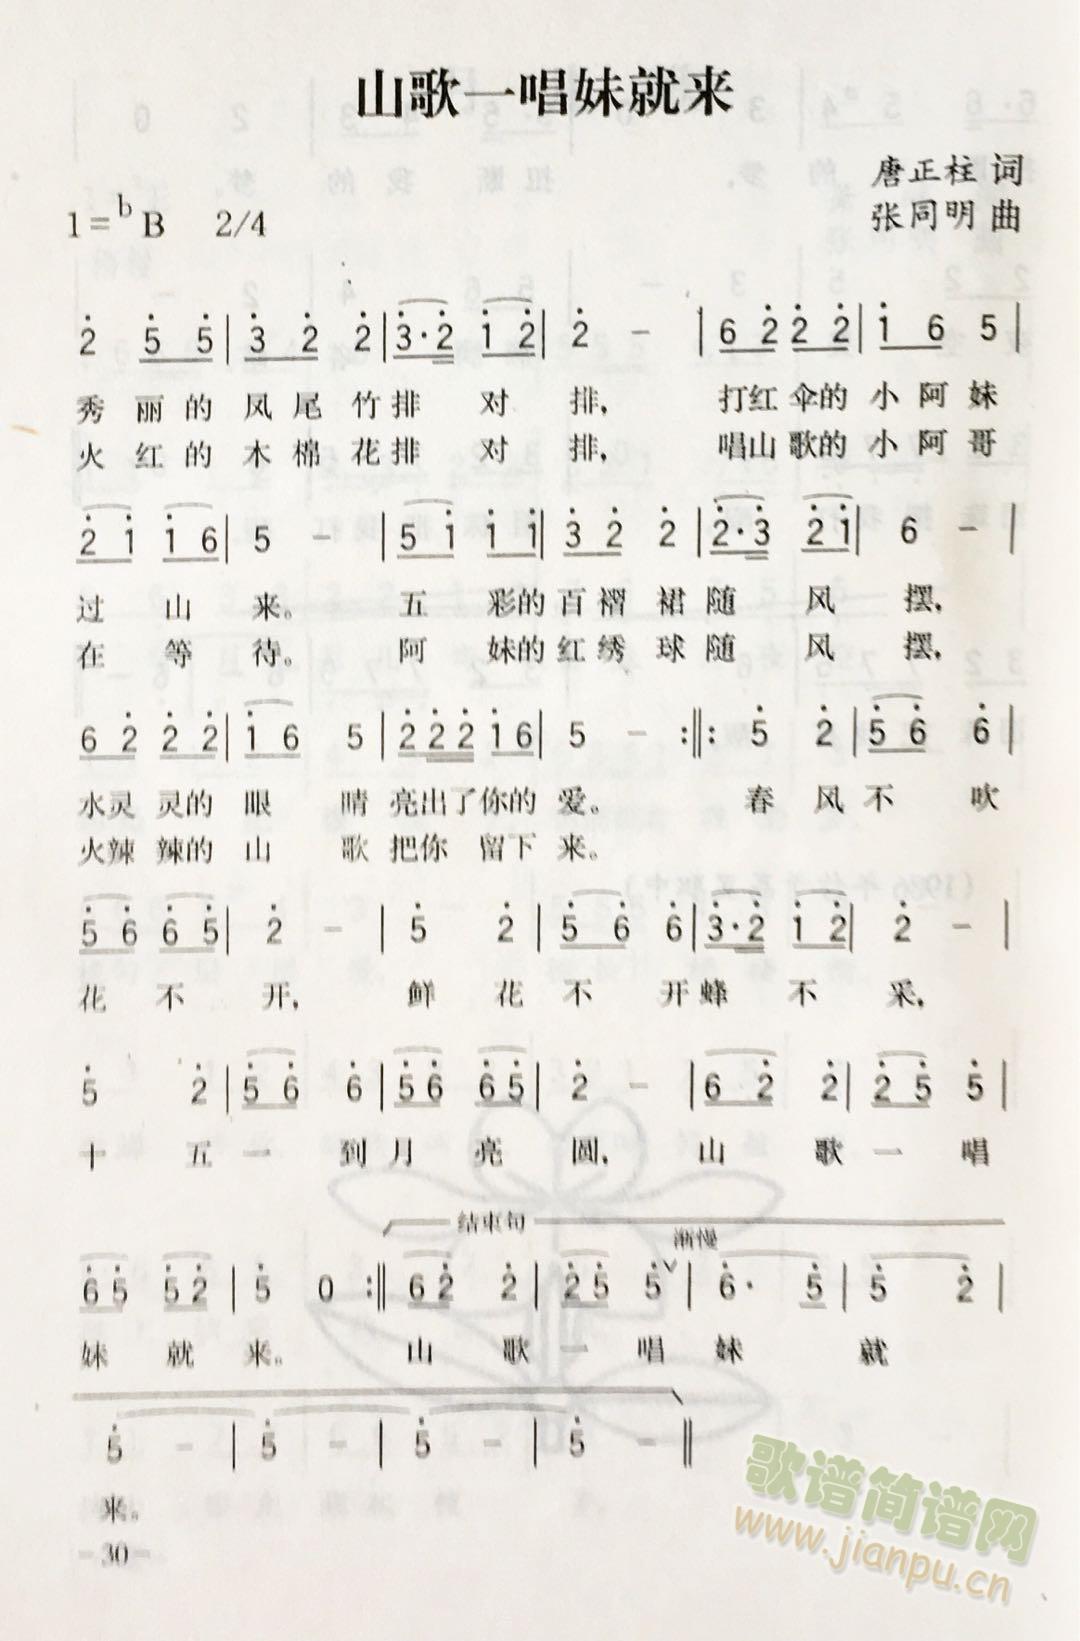 山歌一唱妹就来
唐正柱 词
1=ᵇB 2/4 张同明 曲
2̇ 5̇ 5̇ | 3̇ 2̇ 2̇ | 3̇·2̇ 1̇ 2̇ | 2̇ - | 6 2̇ 2̇ 2̇ | 1̇ 6 5 |
秀丽的凤尾竹排对排, 打红伞的小阿妹
火红的木棉花排对排, 唱山歌的小阿哥
2̇ 1̇ 1̇ 6 | 5 - | 5 1̇ 1̇ 1̇ | 3̇ 2̇ 2̇ | 2̇·3̇ 2̇ 1̇ | 6 - |
过山来。 五彩的百褶裙随风摆,
在等待。 阿妹的红绣球随风摆,
6 2̇ 2̇ 2̇ | 1̇ 6 5 | 2̇ 2̇ 2̇ 1̇ 6 | 5 - :‖: 5̇ 2̇ | 5̇ 6̇ 6̇ |
水灵灵的眼睛亮出了你的爱。 春风不吹
火辣辣的山歌把你留下来。
5̇ 6̇ 6̇ 5̇ | 2̇ - | 5̇ 2̇ | 5̇ 6̇ 6̇ | 3̇·2̇ 1̇ 2̇ | 2̇ - |
花不开, 鲜花不开蜂不采,
5̇ 2̇ | 5̇ 6̇ 6̇ | 5̇ 6̇ 6̇ 5̇ | 2̇ - | 6 2̇ 2̇ | 2̇ 5̇ 5̇ |
十五一到月亮圆, 山歌一唱
结束句
渐慢
6̇ 5̇ 5̇ 2̇ | 5̇ 0 :‖ 6 2̇ 2̇ | 2̇ 5̇ 5̇ | 6̇· 5̇ | 5̇ 2̇ |
妹就来。 山歌一唱妹就
5̇ - | 5̇ - | 5̇ - | 5̇ - ‖
来。
-30-
歌谱简谱网
www.jianpu.cn